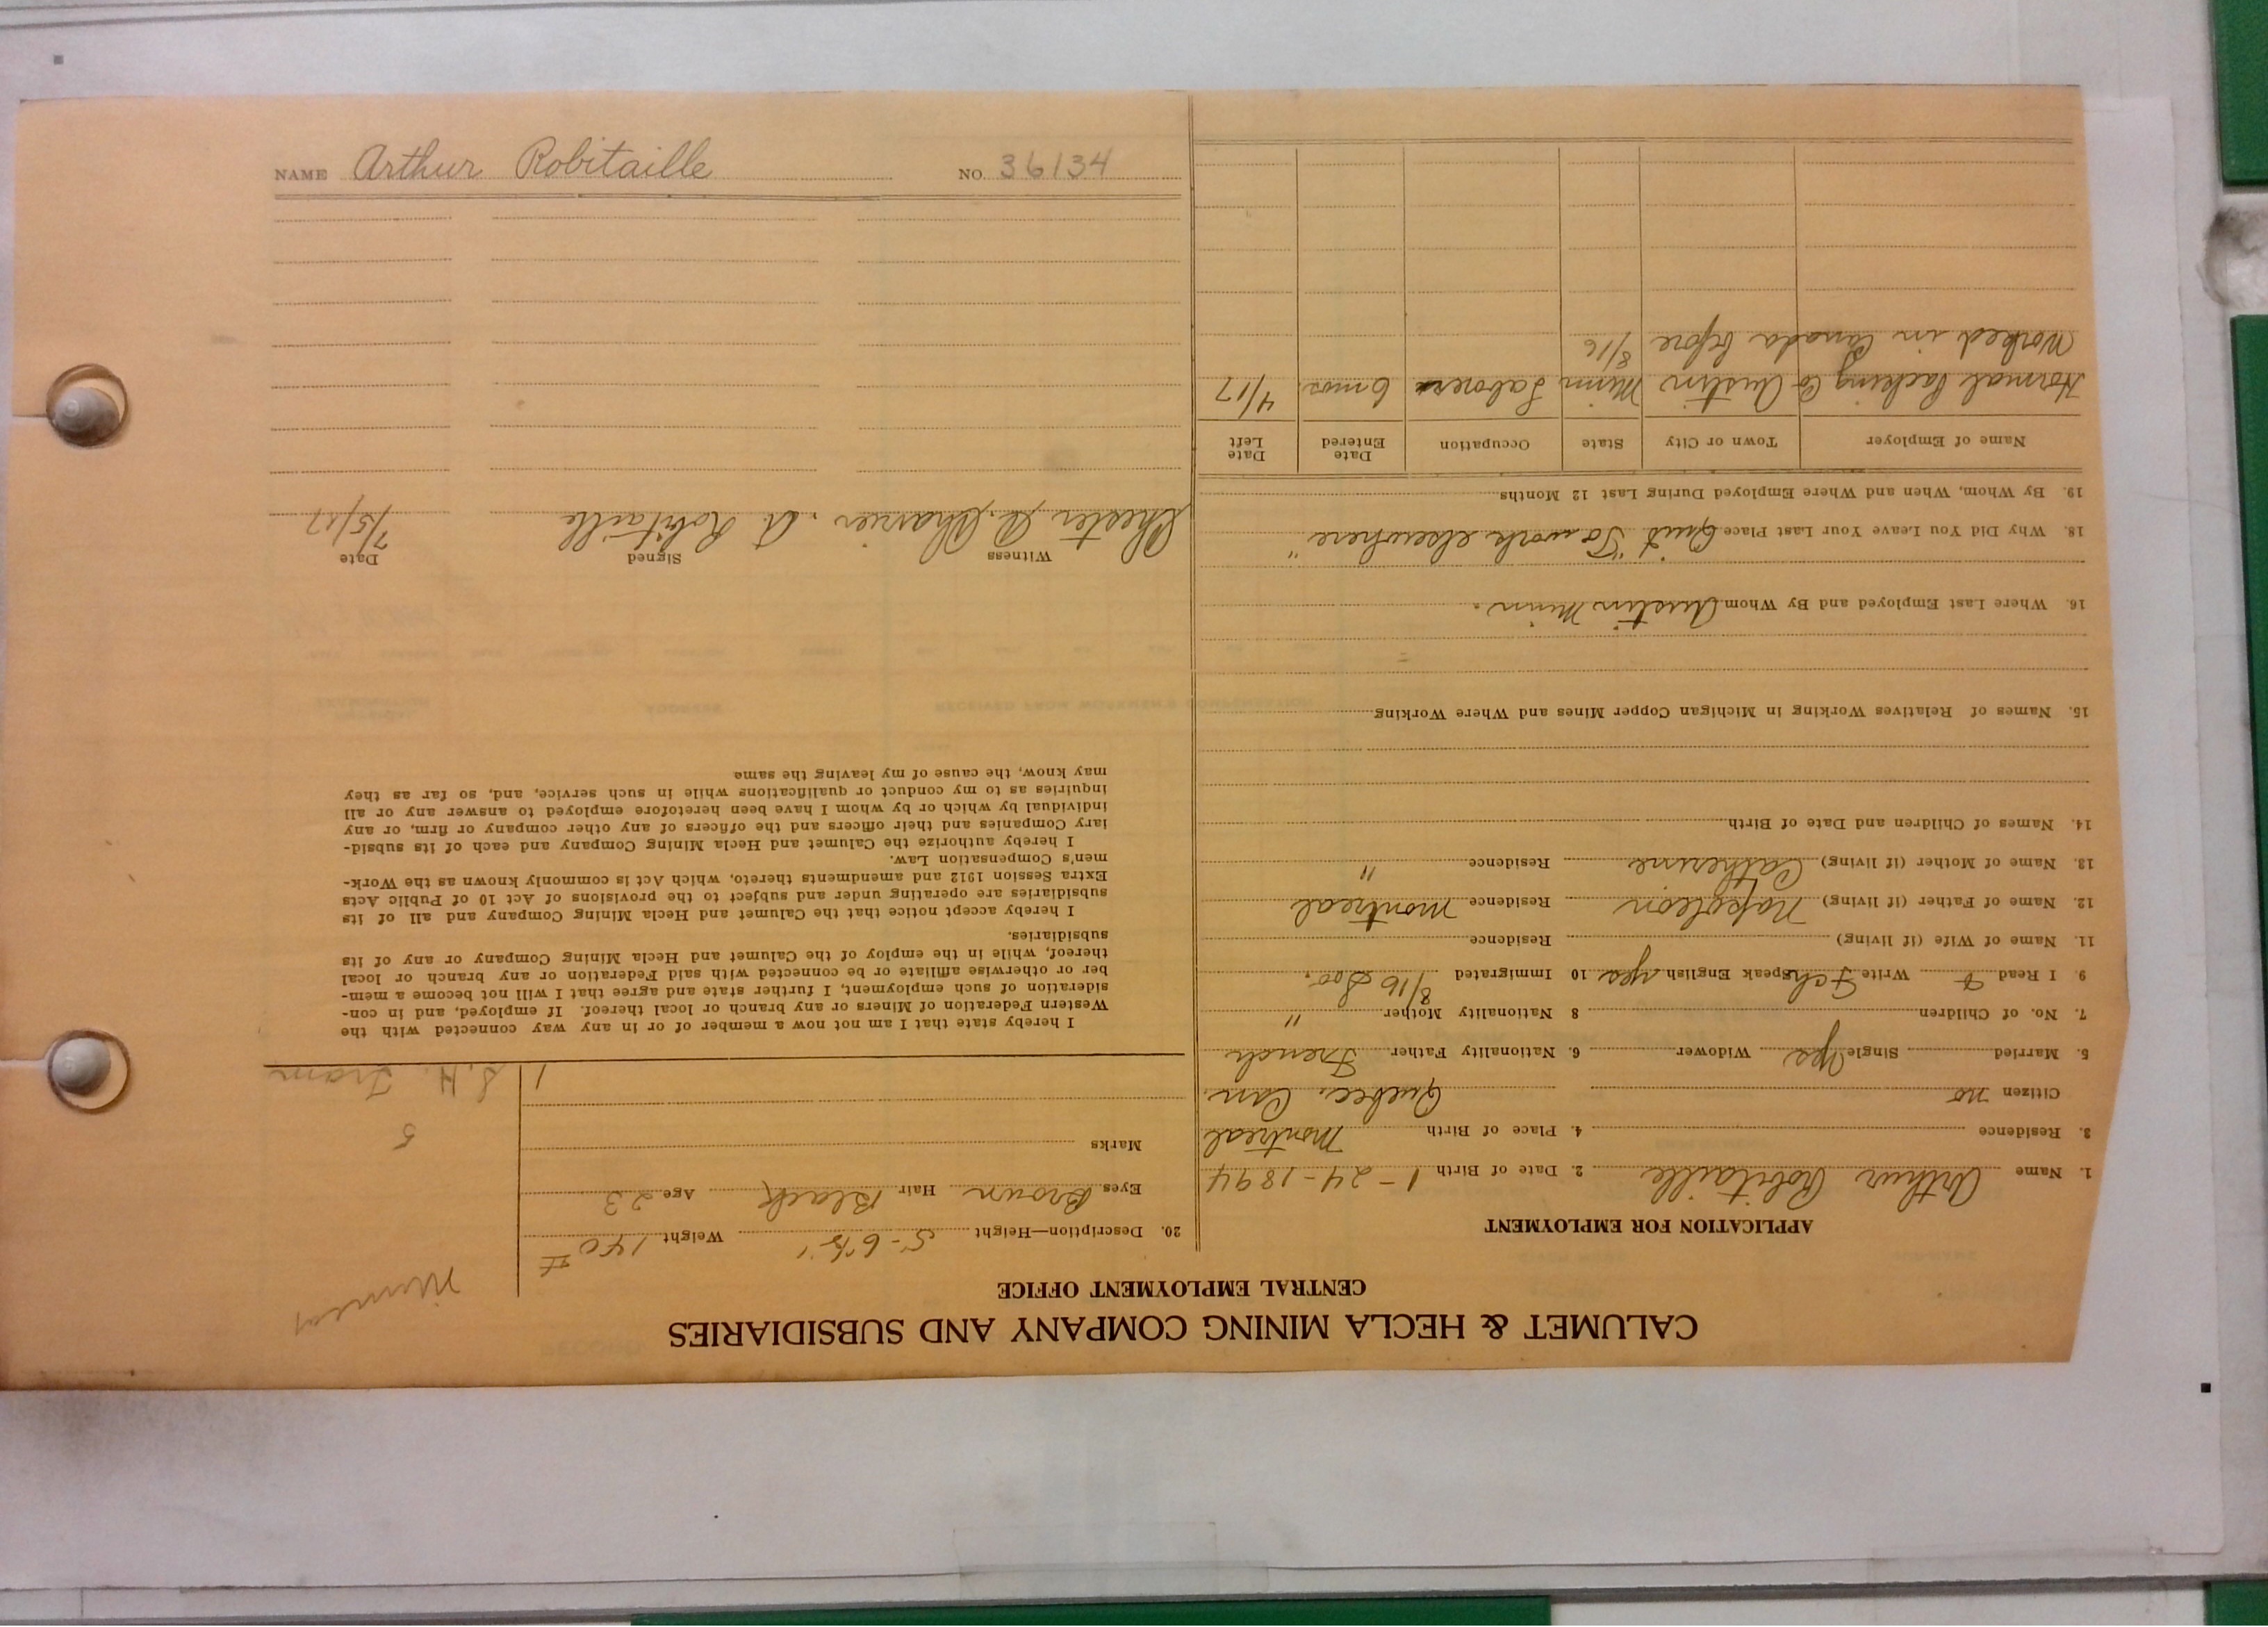 CALUMET & HECLA MINING COMPANY AND SUBSIDIARIES
CENTRAL EMPLOYMENT OFFICE
APPLICATION FOR EMPLOYMENT
1. Name Arthur Robitaille 2. Date of Birth 1-24-1894
3. Residence 4. Place of Birth Montreal
Citizen no Quebec, Can.
5. Married Single Yes Widower 6. Nationality Father French
7. No. of Children 8 Nationality Mother "
9. I Read & Write Fch Speak English yes 10 Immigrated 8/16 Soo.
11. Name of Wife (if living) Residence
12. Name of Father (if living) Napoleon Residence Montreal
13. Name of Mother (if living) Catherine Residence "
14. Names of Children and Date of Birth
15. Names of Relatives Working in Michigan Copper Mines and Where Working
16. Where Last Employed and By Whom Austin Minn.
18. Why Did You Leave Your Last Place Quit "To work elsewhere"
19. By Whom, When and Where Employed During Last 12 Months
Name of Employer Town or City State Occupation Date Entered Date Left
Hormal Packing Co Austin Minn Laborer 6 mos. 4/17
Worked in Canada before 8/16
20. Description—Height 5-6½" Weight 140 #
Eyes Brown Hair Black Age 23
Marks
1
5
S.H. Tram
I hereby state that I am not now a member of or in any way connected with the
Western Federation of Miners or any branch or local thereof. If employed, and in con-
sideration of such employment, I further state and agree that I will not become a mem-
ber or otherwise affiliate or be connected with said Federation or any branch or local
thereof, while in the employ of the Calumet and Hecla Mining Company or any of its
subsidiaries.
I hereby accept notice that the Calumet and Hecla Mining Company and all of its
subsidiaries are operating under and subject to the provisions of Act 10 of Public Acts
Extra Session 1912 and amendments thereto, which Act is commonly known as the Work-
men's Compensation Law.
I hereby authorize the Calumet and Hecla Mining Company and each of its subsid-
iary Companies and their officers and the officers of any other company or firm, or any
individual by which or by whom I have been heretofore employed to answer any or all
inquiries as to my conduct or qualifications while in such service, and, so far as they
may know, the cause of my leaving the same
Witness Signed Date
Chester A. A. Robitaille 7/5/17
NAME Arthur Robitaille NO. 36134